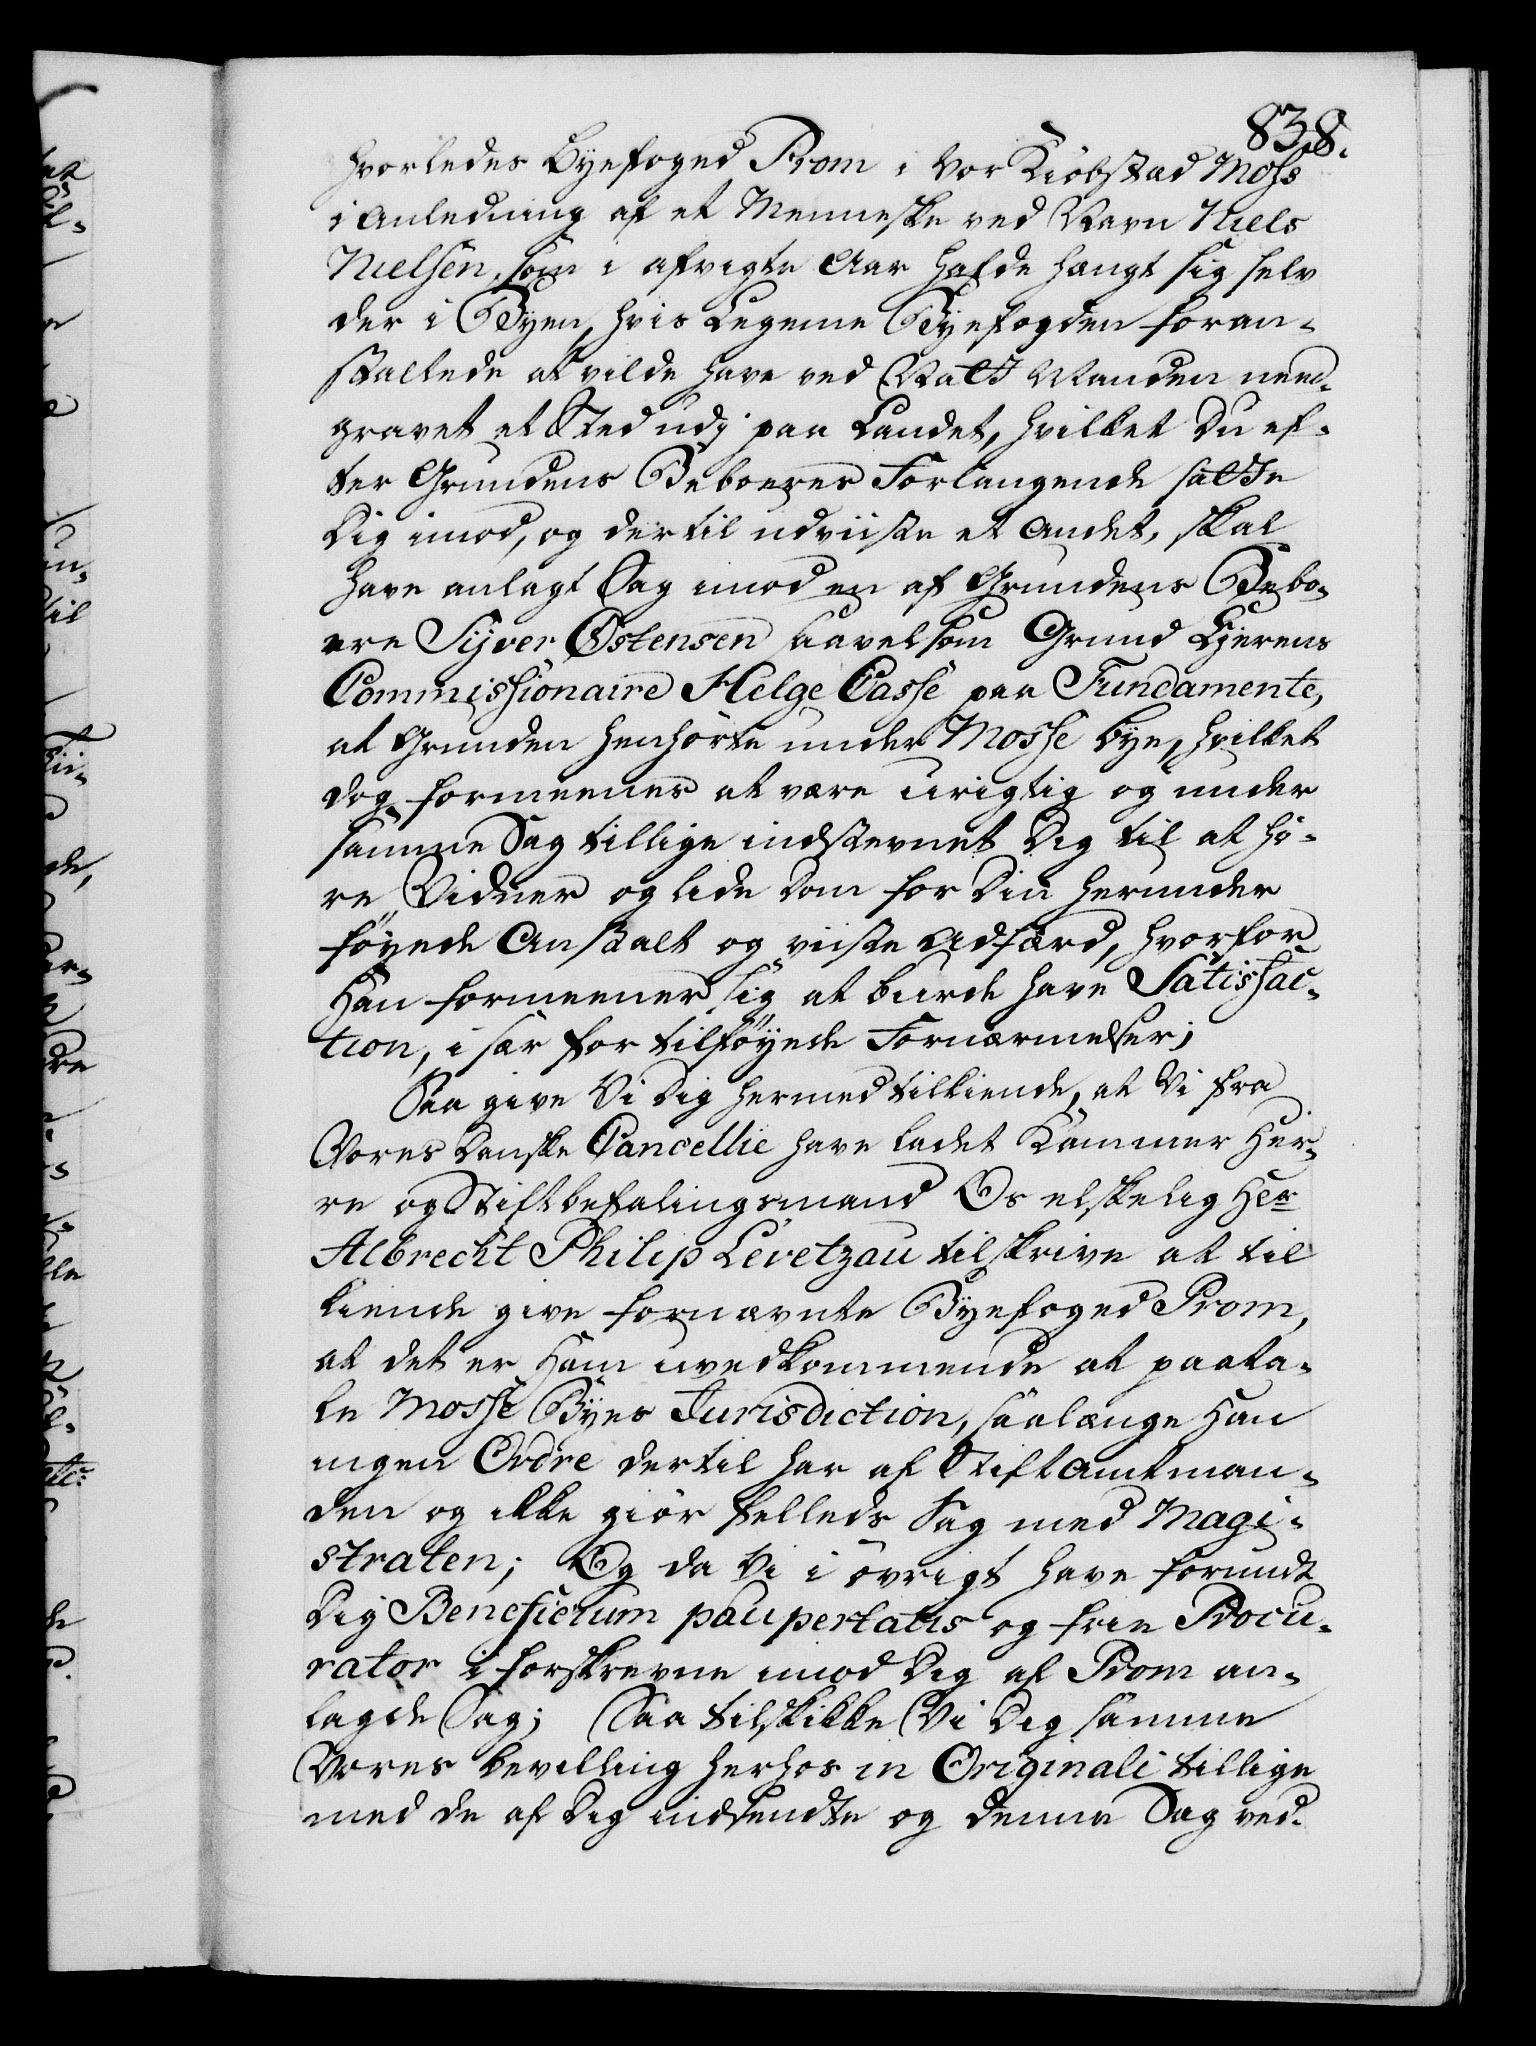 838.
hvorledes Byefoged Prom i Vor Kiöbstad Moss
i Anledning af et Menneske ved Navn Niels
Nielsen, som i afvigte Aar hafde hængt sig selv
der i Byen, hvis Legeme Byefogden foran-
staltede at vilde have ved Natt Manden need-
gravet et Sted udj paa Landet, hvilket Du ef-
ter Grundens Beboeres Forlangende satte
Dig imod, og dertil udviiste et andet, skal
have anlagt Sag imod en af Grundens Bebo-
ere Syver Østensen saavelsom Grund Ejerens
Commissionaire Helge Casse paa Fundamente,
at Grunden henhörte under Mosse bye, hvilket
dog formeenes at være urigtig og under
samme Sag tillige indstevnet Dig til at hö-
re Vidner og lide Dom for Din herunder
föyede Anstalt og viiste Adfærd, hvorfor
Han formeener sig at burde have Satisfac-
tion, i sær for tilföyede Fornærmelser;
Saa give Vi Dig hermed tilkiende, at Vi fra
Vores Danske Cancellie have ladet Kammer Her-
re og Stiftbefalingsmand Os elskelig Her
Albrecht Philip Levetzau tilskrive at til
kiende give fornævnte Byefoged Prom,
at det er Ham uvedkommende at paata-
le Mosse Byes Jurisdiction, saalænge Han
ingen Ordre dertil har af Stiftamtman-
den og ikke giör felleds Sag med Magi-
straten; Og da Vi i övrigt have forundt
Dig Beneficium paupertatis og frie Procu-
rator i forskrevne imod Dig af Prom an-
lagde Sag; Saa tilskikke Vi Dig samme
Vores bevilling herhos in Originali tillige
med de af Dig indsendte og denne Sag ved-